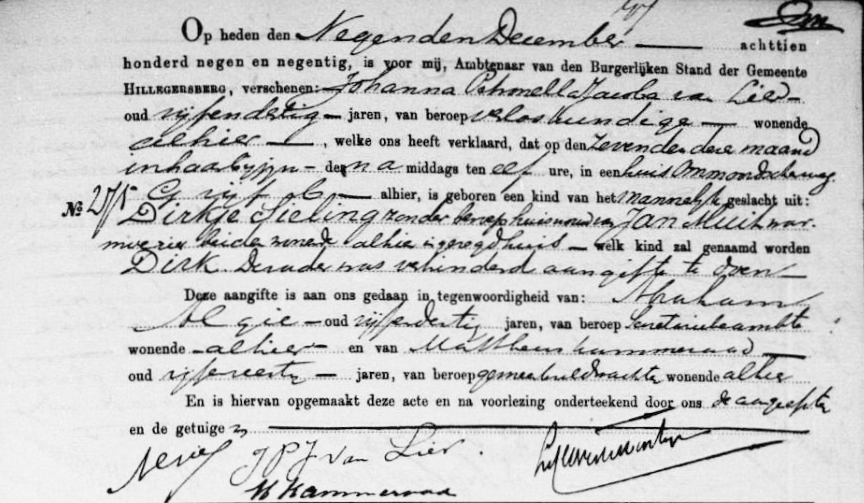 Op heden den Negenden December achttien
honderd negen en negentig, is voor mij, Ambtenaar van den Burgerlijken Stand der Gemeente
HILLEGERSBERG, verschenen: Johanna Petronella Jacoba van Lier
oud vijfendertig jaren, van beroep verloskundige wonende
alhier, welke ons heeft verklaard, dat op den Zevenden dezer maand
in haar bijzijn des na middags ten elf ure, in een huis
alhier, is geboren een kind van het mannelijk geslacht uit:
No 275
Dirkje Sieling zonder beroep huisvrouw van Jan Muit
beide wonende alhier welk kind zal genaamd worden
Dirk De vader was verhinderd aangifte te doen
Deze aangifte is aan ons gedaan in tegenwoordigheid van: Abraham
oud vijfendertig jaren, van beroep Secretariebeambte
wonende alhier en van Mattheus Kammeraad
oud jaren, van beroep gemeenteveldwachter wonende alhier
En is hiervan opgemaakt deze acte en na voorlezing onderteekend door ons de aangeefster
en de getuigen
J P J van Lier
M Kammeraad